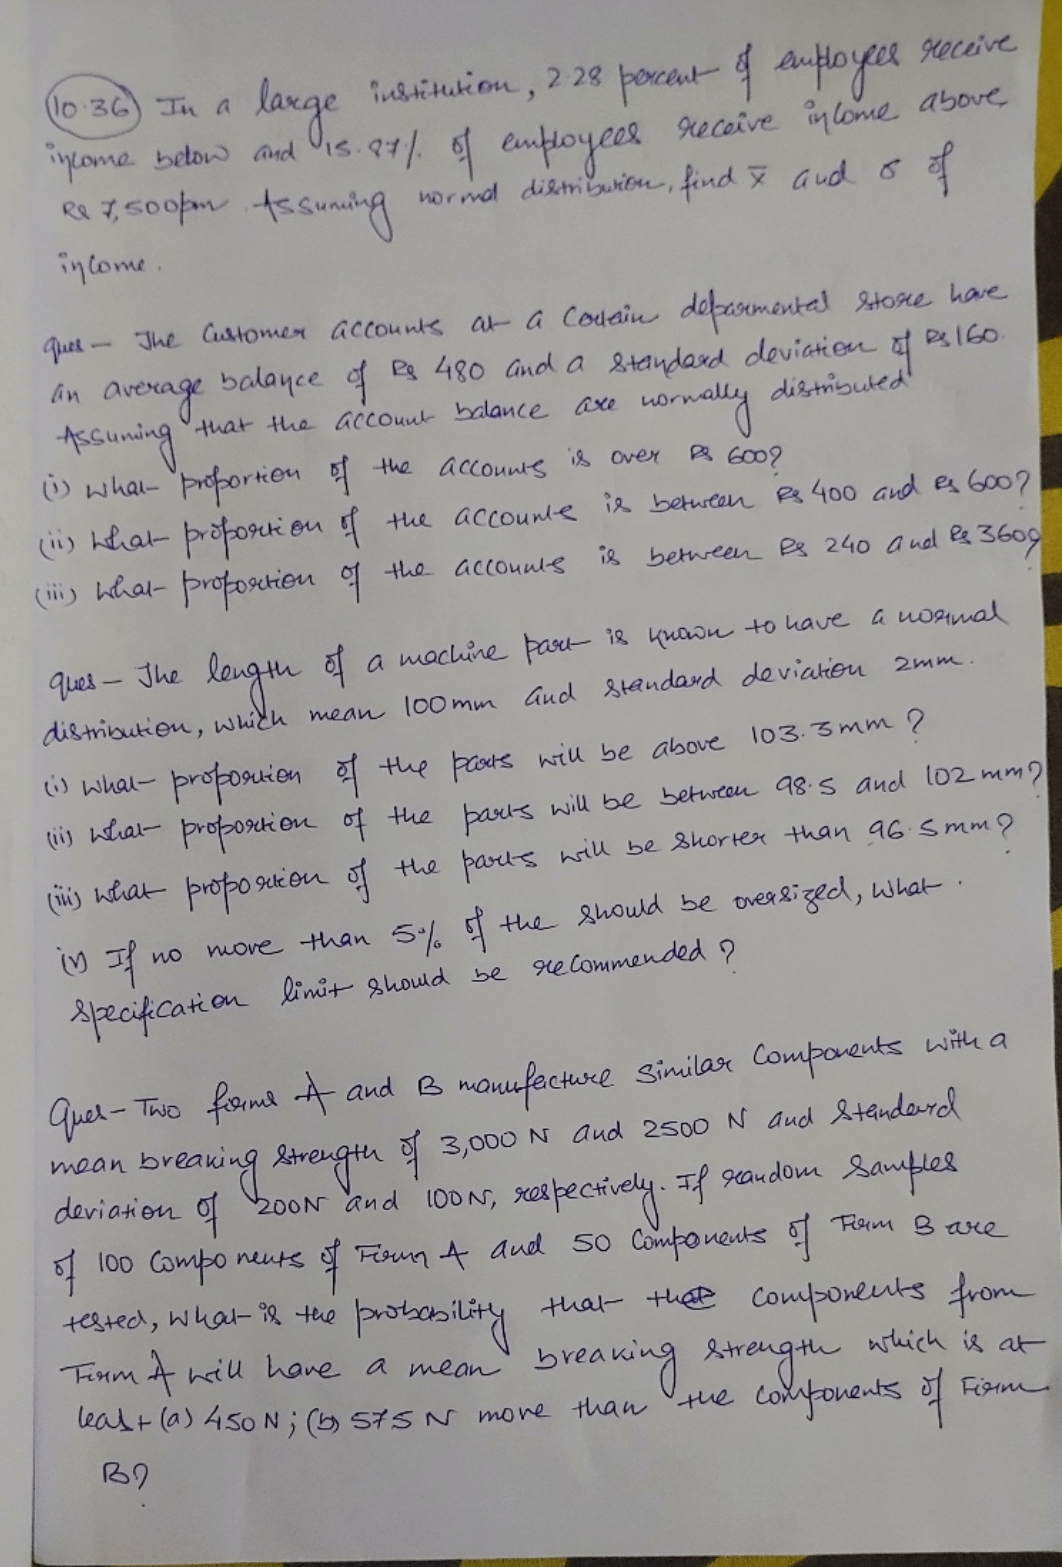 10.36 In a large institution, 2.28 percent of employees receive
income below and 15.87% of employees receive income above
Rs 7,500pm. Assuming normal distribution, find x̄ and σ of
income.
Ques - The Customer accounts at a Certain deparmental Store have
an average balance of Rs 480 and a Standard deviation of Rs 160.
Assuming that the account balance are normally distributed
(i) What proportion of the accounts is over Rs 600?
(ii) What proportion of the accounts is between Rs 400 and Rs 600?
(iii) What proportion of the accounts is between Rs 240 and Rs 360?
Ques - The length of a machine part is known to have a normal
distribution, which mean 100mm and Standard deviation 2mm.
(i) What proportion of the parts will be above 103.3mm?
(ii) What proportion of the parts will be between 98.5 and 102mm?
(iii) What proportion of the parts will be Shorter than 96.5mm?
iv) If no more than 5% of the should be oversized, what
Specification limit should be recommended?
Ques - Two firms A and B manufacture Similar Components with a
mean breaking Strength of 3,000 N and 2500 N and Standard
deviation of 200N and 100N, respectively. If random Samples
of 100 Components of Firm A and 50 Components of Firm B are
tested, What is the probability that the components from
Firm A will have a mean breaking strength which is at
least (a) 450N; (b) 575N more than the components of Firm
B?